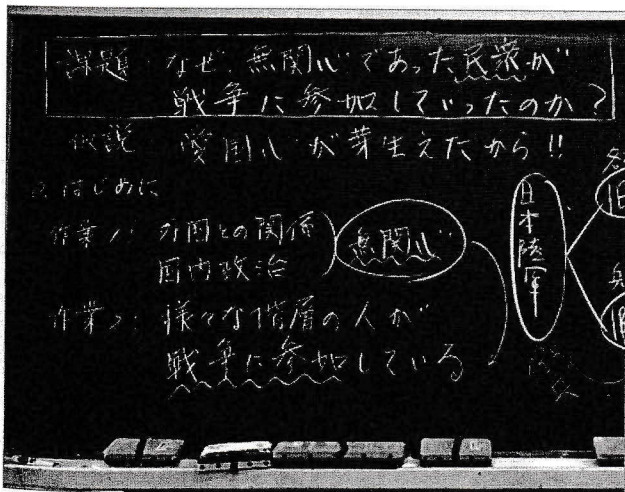 課題:なぜ、無関心であった民衆が
戦争に参加していったのか?
仮説 愛国心が芽生えたから!!
はじめに
作業1: 外国との関係
国内政治
無関心
作業2: 様々な階層の人が
戦争に参加している
日本陸軍